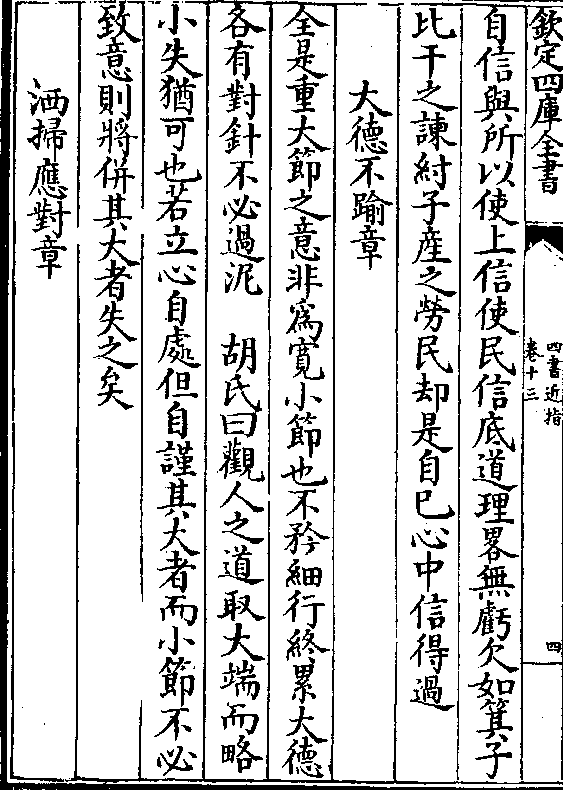 欽定四庫全書
四書近指
卷十三
四
自信與所以使上信使民信底道理畧無虧欠如箕子
比干之諫紂子産之勞民却是自已心中信得過
大德不踰章
全是重大節之意非爲寬小節也不矜細行終累大德
各有對針不必過泥　胡氏曰觀人之道取大端而略
小失猶可也若立心自處但自謹其大者而小節不必
致意則將併其大者失之矣
洒掃應對章